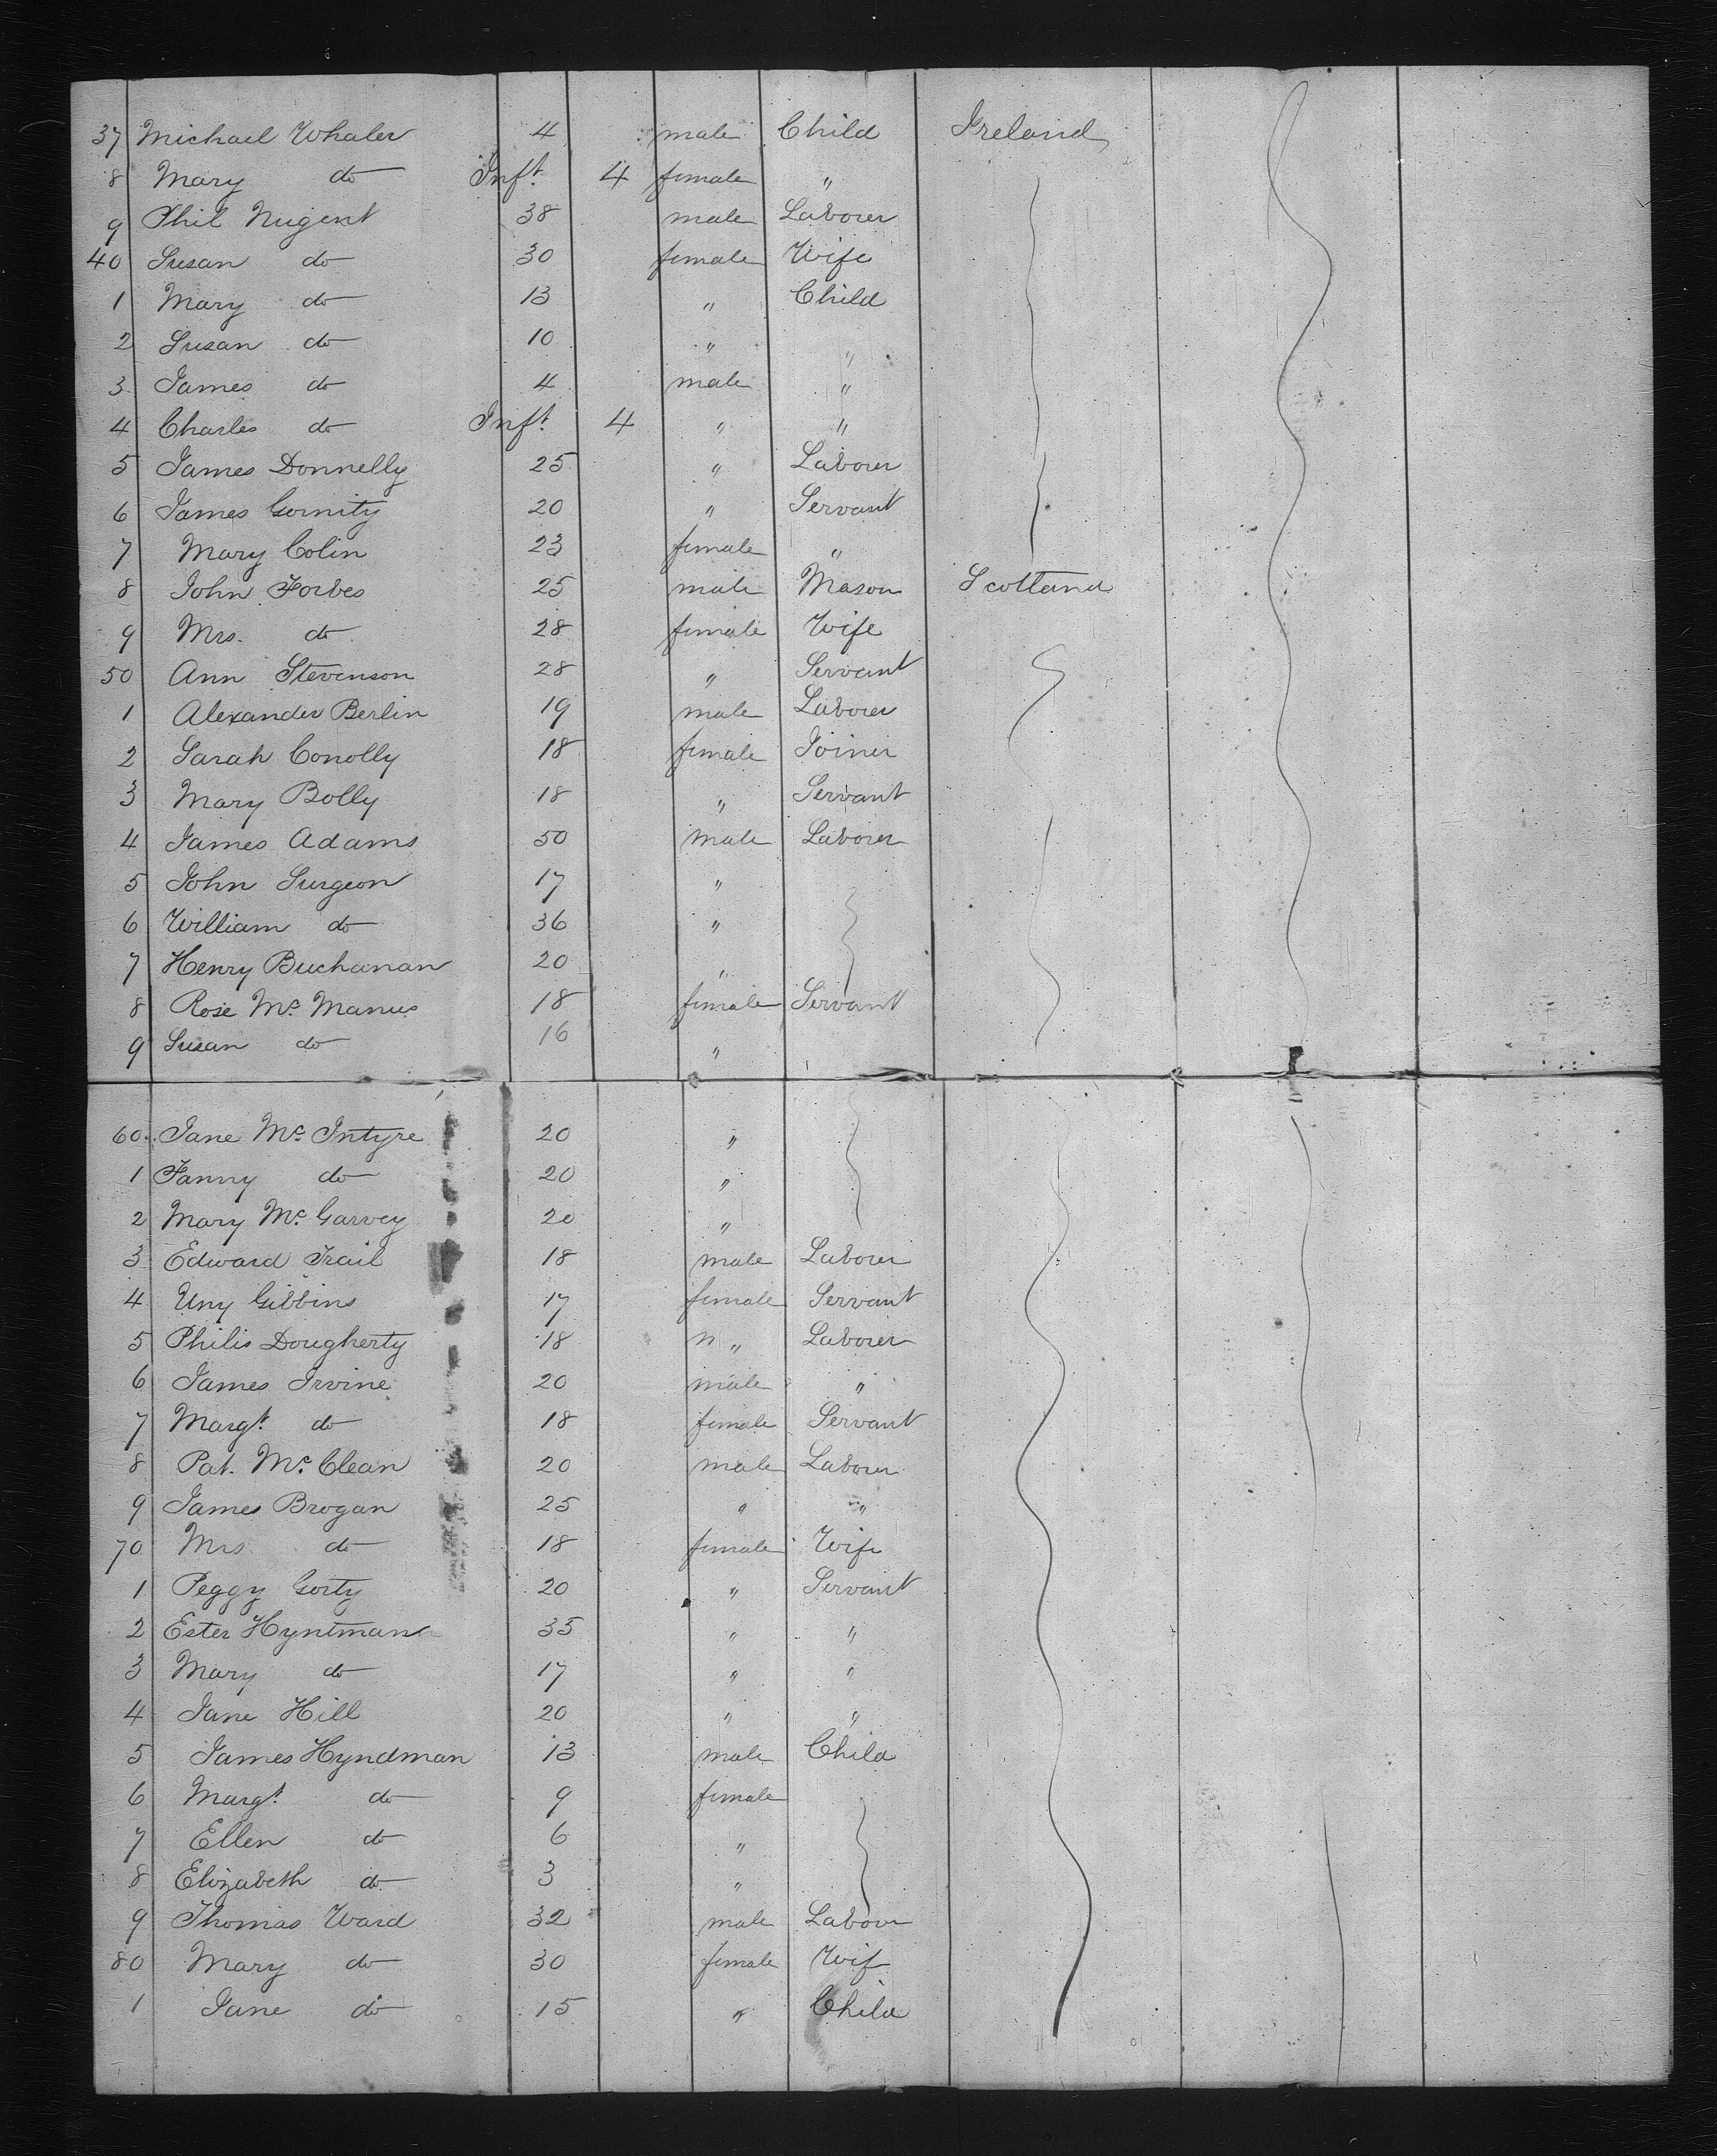 37 Michael Whaler 4 male Child Ireland
8 Mary do Inft. 4 female "
9 Phil Nugent 38 male Laborer
40 Susan do 30 female Wife
1 Mary do 13 " Child
2 Susan do 10 " "
3 James do 4 male "
4 Charles do Inft. 4 " "
5 James Donnelly 25 " Laborer
6 James Gornity 20 " Servant
7 Mary Colin 23 female "
8 John Forbes 25 male Mason Scotland
9 Mrs. do 28 female Wife
50 Ann Stevenson 28 " Servant
1 Alexander Berlin 19 male Laborer
2 Sarah Conolly 18 female Joiner
3 Mary Bolly 18 " Servant
4 James Adams 50 male Laborer
5 John Surgeon 17 "
6 William do 36 "
7 Henry Buchanan 20 "
8 Rose Mc Manus 18 female Servant
9 Susan do 16 "
60 Jane Mc Intyre 20 "
1 Fanny do 20 "
2 Mary Mc Garvey 20 "
3 Edward Trail 18 male Laborer
4 Uny Gibbins 17 female Servant
5 Philis Dougherty 18 " Laborer
6 James Irvine 20 male "
7 Margt. do 18 female Servant
8 Pat. Mc Clean 20 male Laborer
9 James Brogan 25 " "
70 Mrs do 18 female Wife
1 Peggy Gorty 20 " Servant
2 Ester Hyntman 35 " "
3 Mary do 17 " "
4 Jane Hill 20 " "
5 James Hyndman 13 male Child
6 Margt. do 9 female
7 Ellen do 6 "
8 Elizabeth do 3 "
9 Thomas Ward 32 male Labour
80 Mary do 30 female Wif
1 Jane do 15 " Child